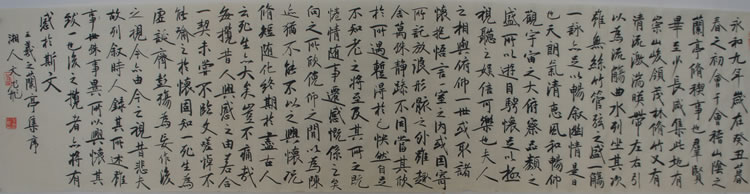 永和九年歲在癸丑暮
春之初會于會稽山陰之
蘭亭脩稧事也群賢
畢至少長咸集此地有
崇山峻領茂林脩竹又有
清流激湍暎帶左右引
以為流觴曲水列坐其次
雖無絲竹管弦之盛一觴
一詠亦足以暢敘幽情是日也
天朗氣清惠風和暢仰
觀宇宙之大俯察品類之
盛所以遊目騁懷足以極
視聽之娛信可樂也夫人
之相與俯仰一世或取諸
懷抱悟言一室之內或因寄
所託放浪形骸之外雖趣
舍萬殊靜躁不同當其欣
於所遇暫得於己快然自足
不知老之將至及其所之既
惓情隨事遷感慨係之矣
向之所欣俛仰之間以為陳
跡猶不能不以之興懷況
脩短隨化終期於盡古人
云死生亦大矣豈不痛哉
每攬昔人興感之由若合
一契未嘗不臨文嗟悼不
能喻之於懷固知一死生為
虛誕齊彭殤為妄作後之
視今亦由今之視昔悲夫
故列敘時人錄其所述雖
世殊事異所以興懷其
致一也後之攬者亦將有
感於斯文
王羲之蘭亭集序
湘人